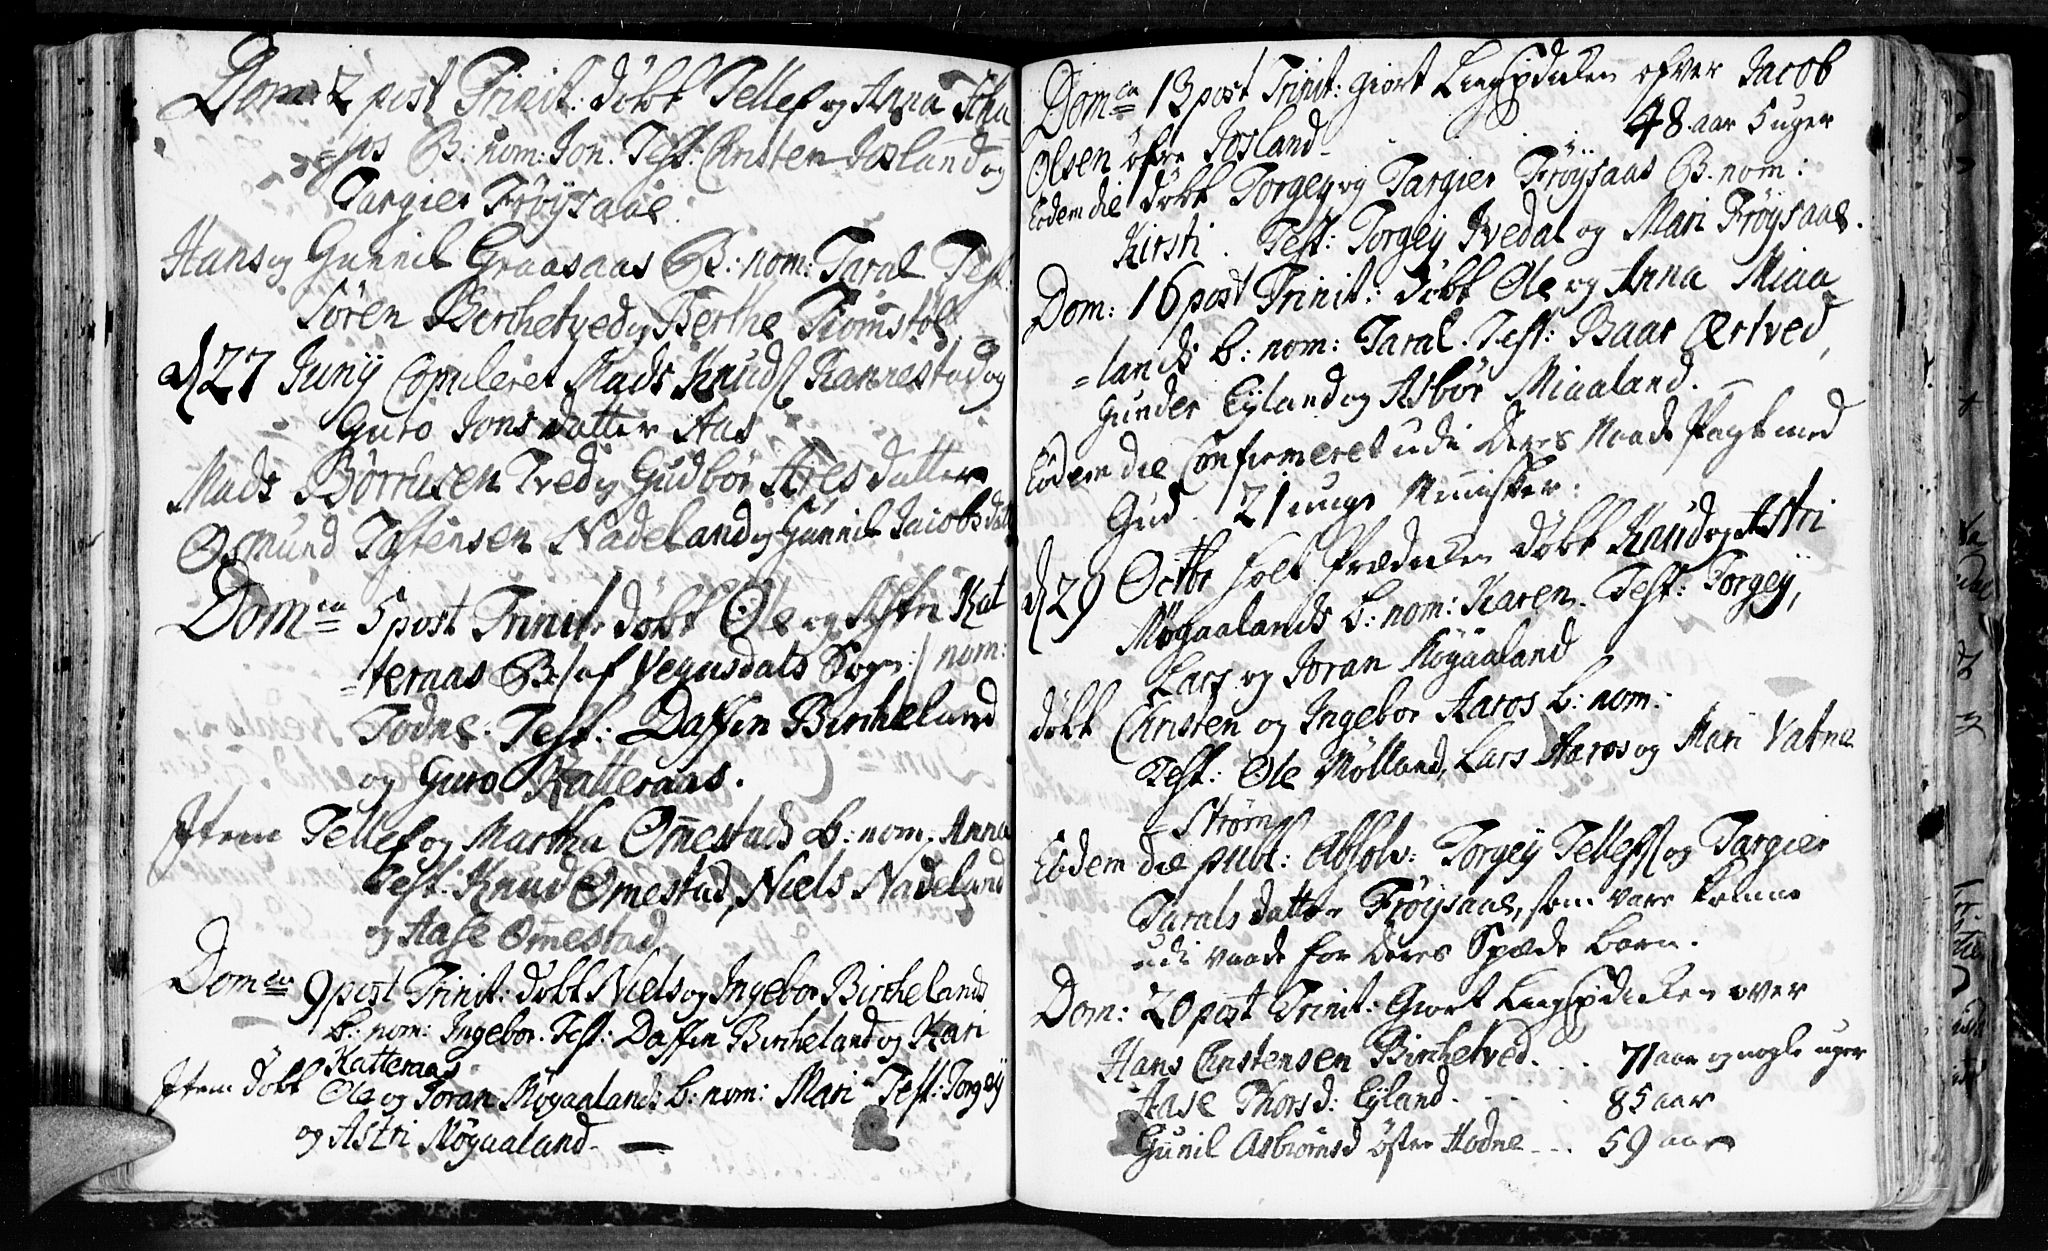 Dom: 2 post Trinit: døbt Tellef og Anna
B: nom: Jon. Test: Christen Josland og
Targier Frøysaae.
Hans og Gunnil Graasaas B: nom: Taral Test:
Søren Berchetved og Berthe Tiomstøl
d 27 Junij Copuleret Mads Knuds Kannestad og
Guro Jons datter Aas
Mads Børrusen Tved og Gudbør Ases datter
Osmund Tostensen Nadeland og Gunnil Jacobs datt
Dom:ca 5 post Trinit: døbt Ole og Astri Kat
=teraas B: /: af Vegusdals Sogn :/ nom:
Todne. Test: Daffin Bircheland
og Guro Katteraas.
Item Tellef og Martha Omestads b: nom: Anna
Test: Knud Omestad, Niels Nadeland
og Aase Omestad.
Dom:ca 9 post Trinit: døbt Niels og Ingebor Birchelands
b: nom: Ingebor. Test: Daffin Bircheland og Kari
Katteraas
Item døbt Ole og Joran Møgaalands b: nom: Mari Test: Torgey
og Astri Møgaaland.
Dom:ca 13 post Trinit: giort Liigprædiken ofver Jacob
Olsen øfre Josland. 48 aar 5 uger
Eodem die døbt Torgey og Targier Frøysaas B. nom:
Kirsti. Test: Torgey Kvedal og Mari Frøysaas.
Dom: 16 post Trinit: døbt Ole og Anna Miaa
=lands b: nom: Taral. Test: Baar Ærtved,
Gunder Eyland og Asbør Miaaland.
Eodem die Confirmeret udi deres Naade Pagt med
Gud. 21 unge Mennisker:
d 29 Octbr holt Prædiken døbt Knud og Astri
Møgaalands b: nom: Karen. Test: Torgey,
Lars og Joran Møgaaland
døbt Christen og Ingebor Aaros b: nom:
Test: Ole Mølland, Lars Aaros og Mari Vatne
Strøm
Eodem die publ: Absolv: Torgey Tellefs og Targier
Tarals datter Frøysaas, som vare komne
udi vaade for deres Spæde barn.
Dom: 20 post Trinit: Giort Liigprædiken over
Hans Christensen Birchetved. . . 71 aar og nogle uger
Aase Thorsd: Eyland. . . . 85 aar
Gunil Asbiørnsd Østre Hodne . . . 59 aar